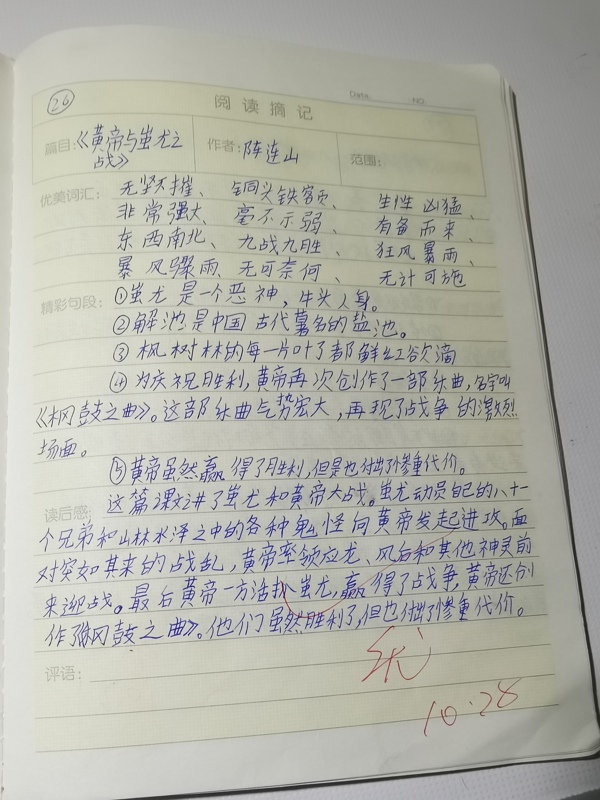 Date. NO.
26
阅读摘记
篇目:《黄帝与蚩尤之战》 作者:陈连山 范围:
优美词汇: 无坚不摧、铜头铁额、生性凶猛、
非常强大、毫不示弱、有备而来、
东西南北、九战九胜、狂风暴雨、
暴风骤雨、无可奈何、无计可施
精彩句段: ①蚩尤是一个恶神,牛头人身。
②解池是中国古代著名的盐池。
③枫树林的每一片叶子都鲜红欲滴
④为庆祝胜利,黄帝再次创作了一部乐曲,名字叫
《㭎鼓之曲》。这部乐曲气势宏大,再现了战争的激烈
场面。
⑤黄帝虽然赢得了胜利,但是也付出了惨重代价。
读后感: 这篇课文讲了蚩尤和黄帝大战。蚩尤动员自己的八十一
个兄弟和山林水泽之中的各种鬼怪向黄帝发起进攻。面
对突如其来的战乱,黄帝率领应龙、风后和其他神灵前
来迎战。最后黄帝一方活捉蚩尤,赢得了战争,黄帝还创
作了《㭎鼓之曲》。他们虽然胜利了,但也付出了惨重代价。
评语:
优
10.28